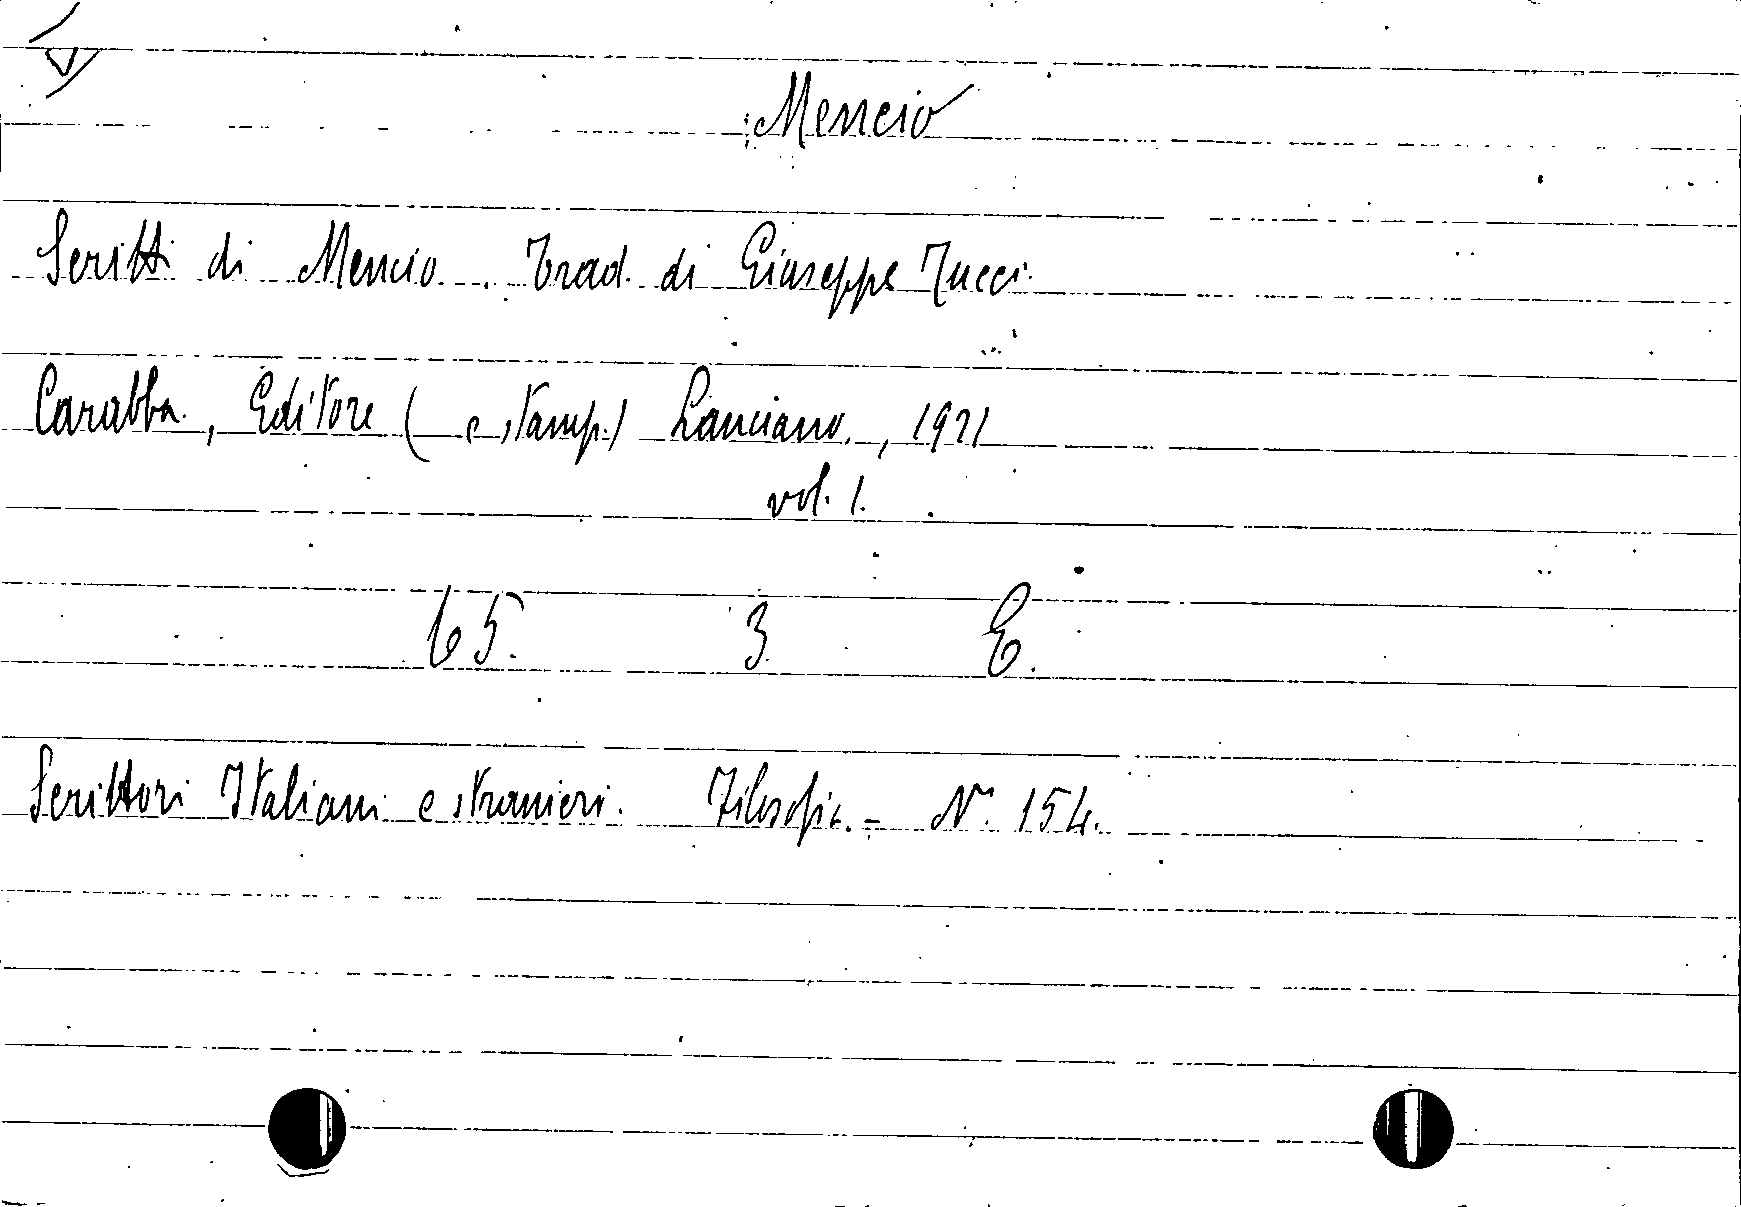 Mencio
Scritti di Mencio. Trad. di Giuseppe Tucci.
Carabba, Editore ( e stamp.) Lanciano, 1921
vol. 1.
65. 3 E.
Scrittori Italiani e stranieri. Filosofia. - N. 154.